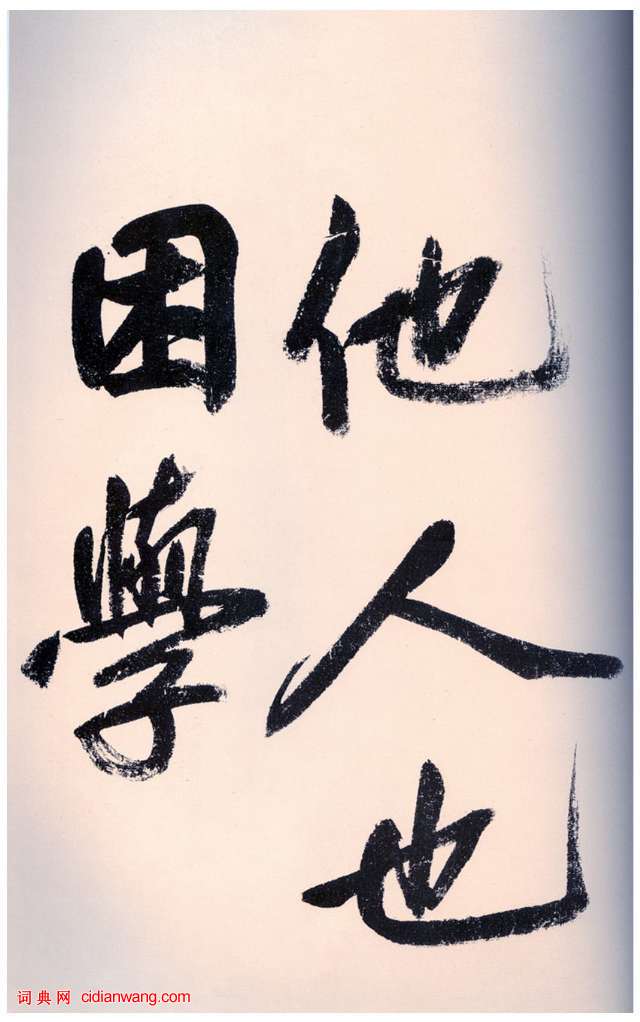 他人也
困學
词典网 cidianwang.com